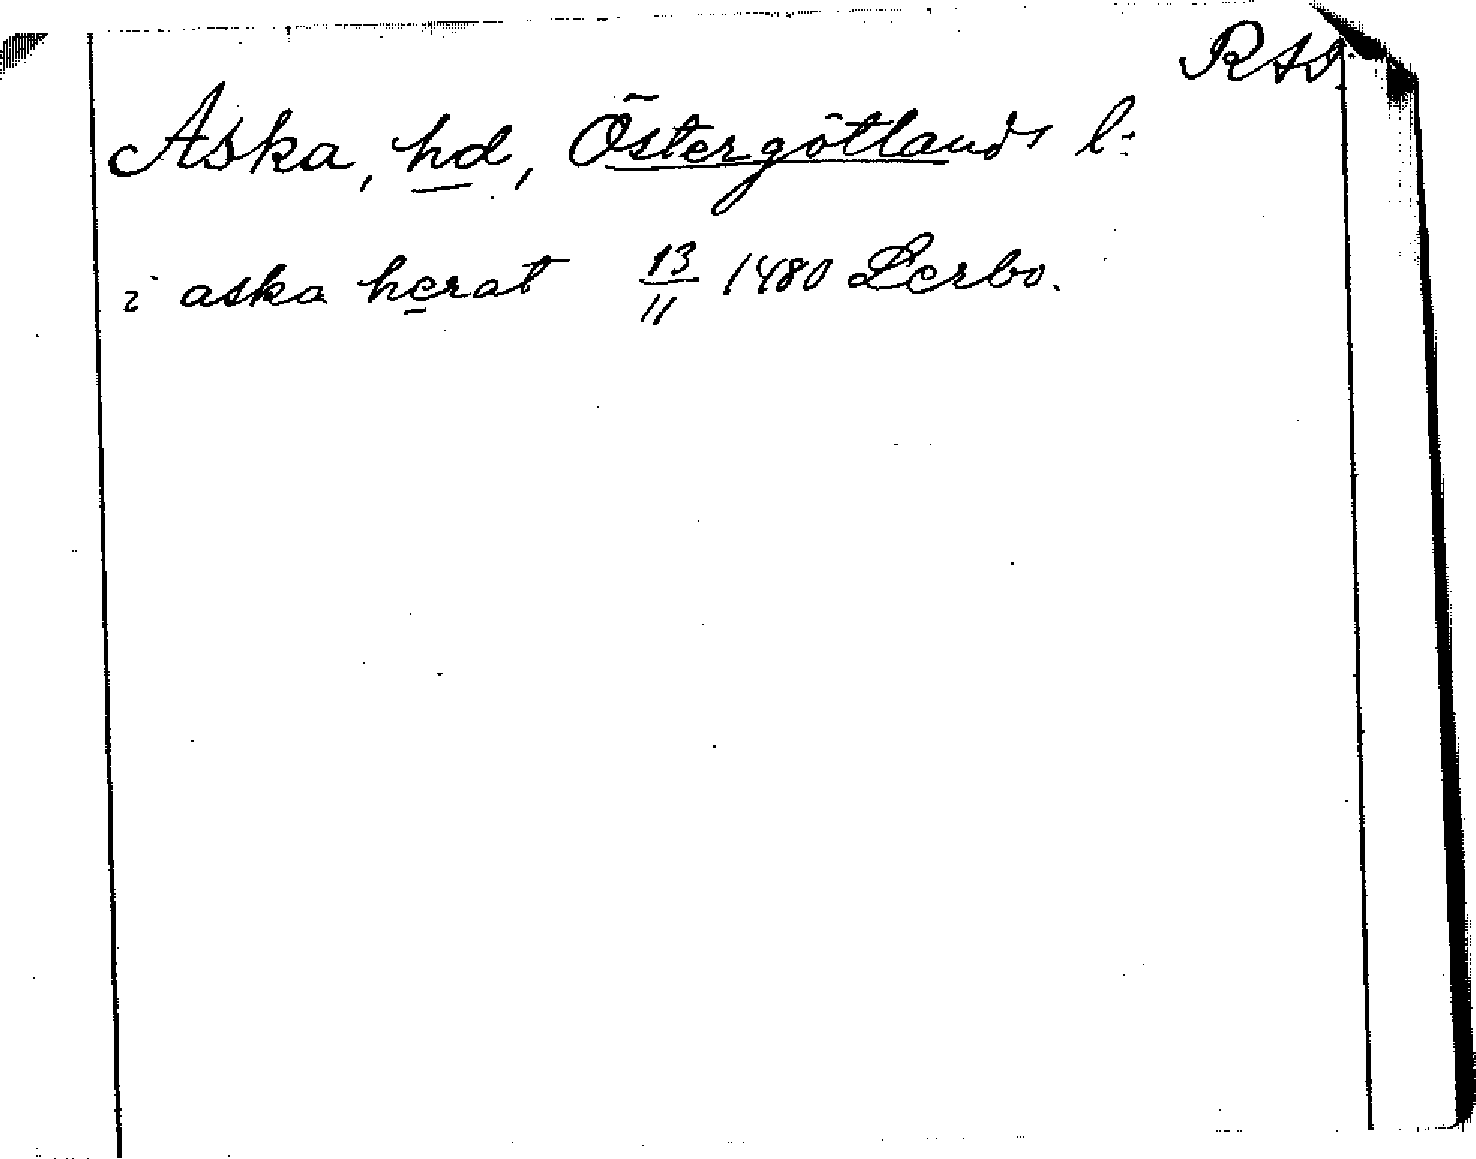 RAS
Aska, hd, Östergötlands l:
i aska herat 13/11 1480 Lerbo.